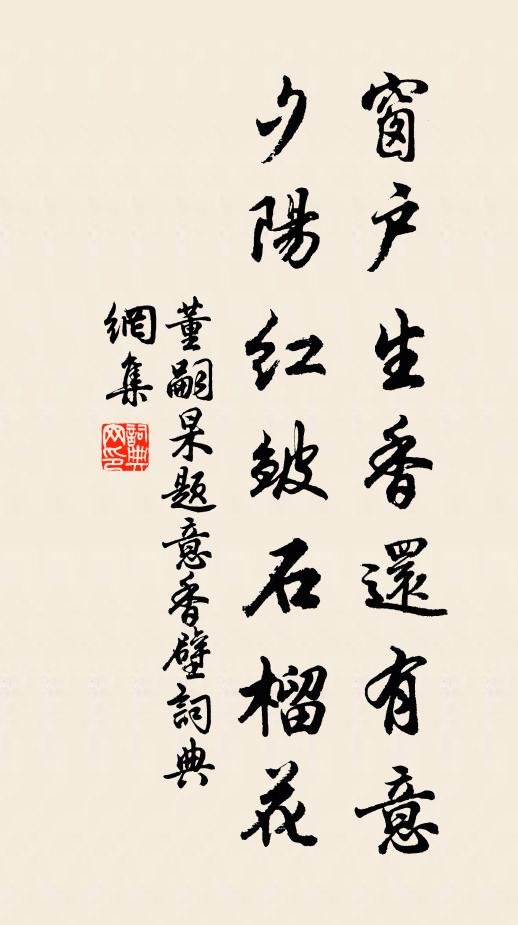 窗户生香還有意
夕陽红皴石榴花
董嗣杲题意香壁詞典
網集
詞典
网印